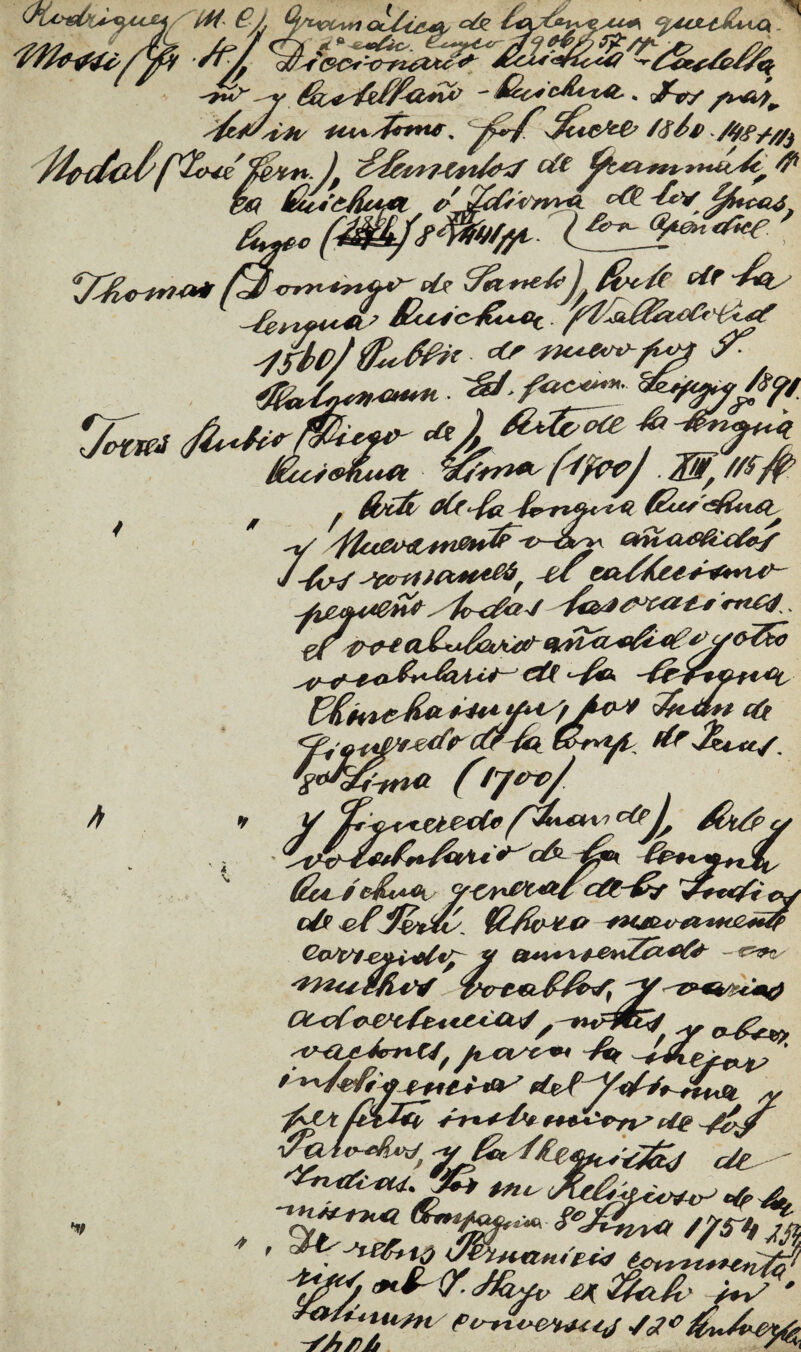 Rodriguez (M. C.), Gramática de la lengua quechua.
2ª edic. Cuzco 1906 57 pp
Mossi (fr H.), Diccionario Quichua-Castella
no y Castellano-Quichua. Dos par-
tes in un tomo. fol. Sucre 1860. 148+113
pp
Nodal (José fern.), Elementos de Grammáti
ca Quichua ó Idioma de los Yncas,
Cuzco 8º XVI 441 pp. Con Apéndice
Thomas (Domingo de Sancto), Arte de la
lengua Quichua. (Valladolid
1560) Public. de nuevo por J.
Platzmann. Ed. facsim. Leipzig 1891.
8º
Torres Rubio (Diego de), Arte de la lengua
Quichua Lima (1700). XIV, 115 ff
" " , Arte de la lengua Quichua,
y Nuevamente van añadidos
los romances, el cathecismo
pequeño todas las oraciones.
el vocabulario añadido y otro
vocabulario de la lengua
Chinchaisuyu, por Juan de
Figueredo de la Comp. de Jesus.
8º Lima (1700)
" " y Figueredo (Juan de), Arte y
vocabulario de la lengua
Quichua general de los Indios
de el Perú. Ahora nuevamente
corregido, y aumentado en
muchos vocablos, y varias
advertencias, notas, y obser-
vaciones, para la mejor
inteligencia del Ydioma, y
perfecta instruccion de los
Parochos, y Cathequistas de
Indias. Por un Religioso de la
misma Compagnia 8º Lima 1754 254
" " , De rebus Peruanicis commenta
rius, ab J. Hayo ex Italo in
Latinum conversus 12º Antverpi
1604